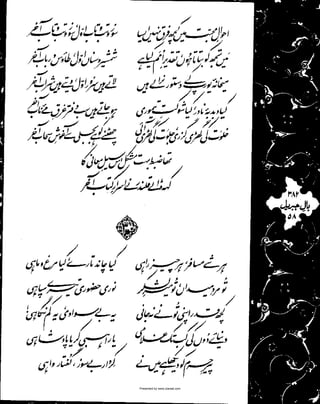 احوالِ محبت میں کچھ فرق نہیں ایسا
سوز و تب و تاب اوّل، سوز و تب و تاب آخر
میں تجھ کو بتاتا ہوں، تقدیرِ امم کیا ہے
شمشیر و سناں اوّل، طاؤس و رباب آخر
میخانۂ یورپ کے دستور نرالے ہیں
لاتے ہیں سرور اوّل، دیتے ہیں شراب آخر
کیا دبدبۂ نادر، کیا شوکتِ تیموری
ہو جاتے ہیں سب دفتر غرقِ مئے ناب آخر
خلوت کی گھڑی گزری، جلوت کی گھڑی آئی
چھٹنے کو ہے بجلی سے آغوشِ سحاب آخر
تھا ضبط بہت مشکل اس سیلِ معانی کا
کہہ ڈالے قلندر نے اسرارِ کتاب آخر
ہر شے مسافر، ہر چیز راہی
کیا چاند تارے، کیا مرغ و ماہی
تو مردِ میداں، تو میرِ لشکر
نوری حضوری تیرے سپاہی
کچھ قدر اپنی تو نے نہ جانی
یہ بے سوادی، یہ کم نگاہی
دنیائے دوں کی کب تک غلامی
یا راہبی کر یا پادشاہی
پیرِ حرم کو دیکھا ہے میں نے
کردار بے سوز، گفتار واہی
۳۸۲
بالِ جبریل
۵۸
Presented by www.ziaraat.com